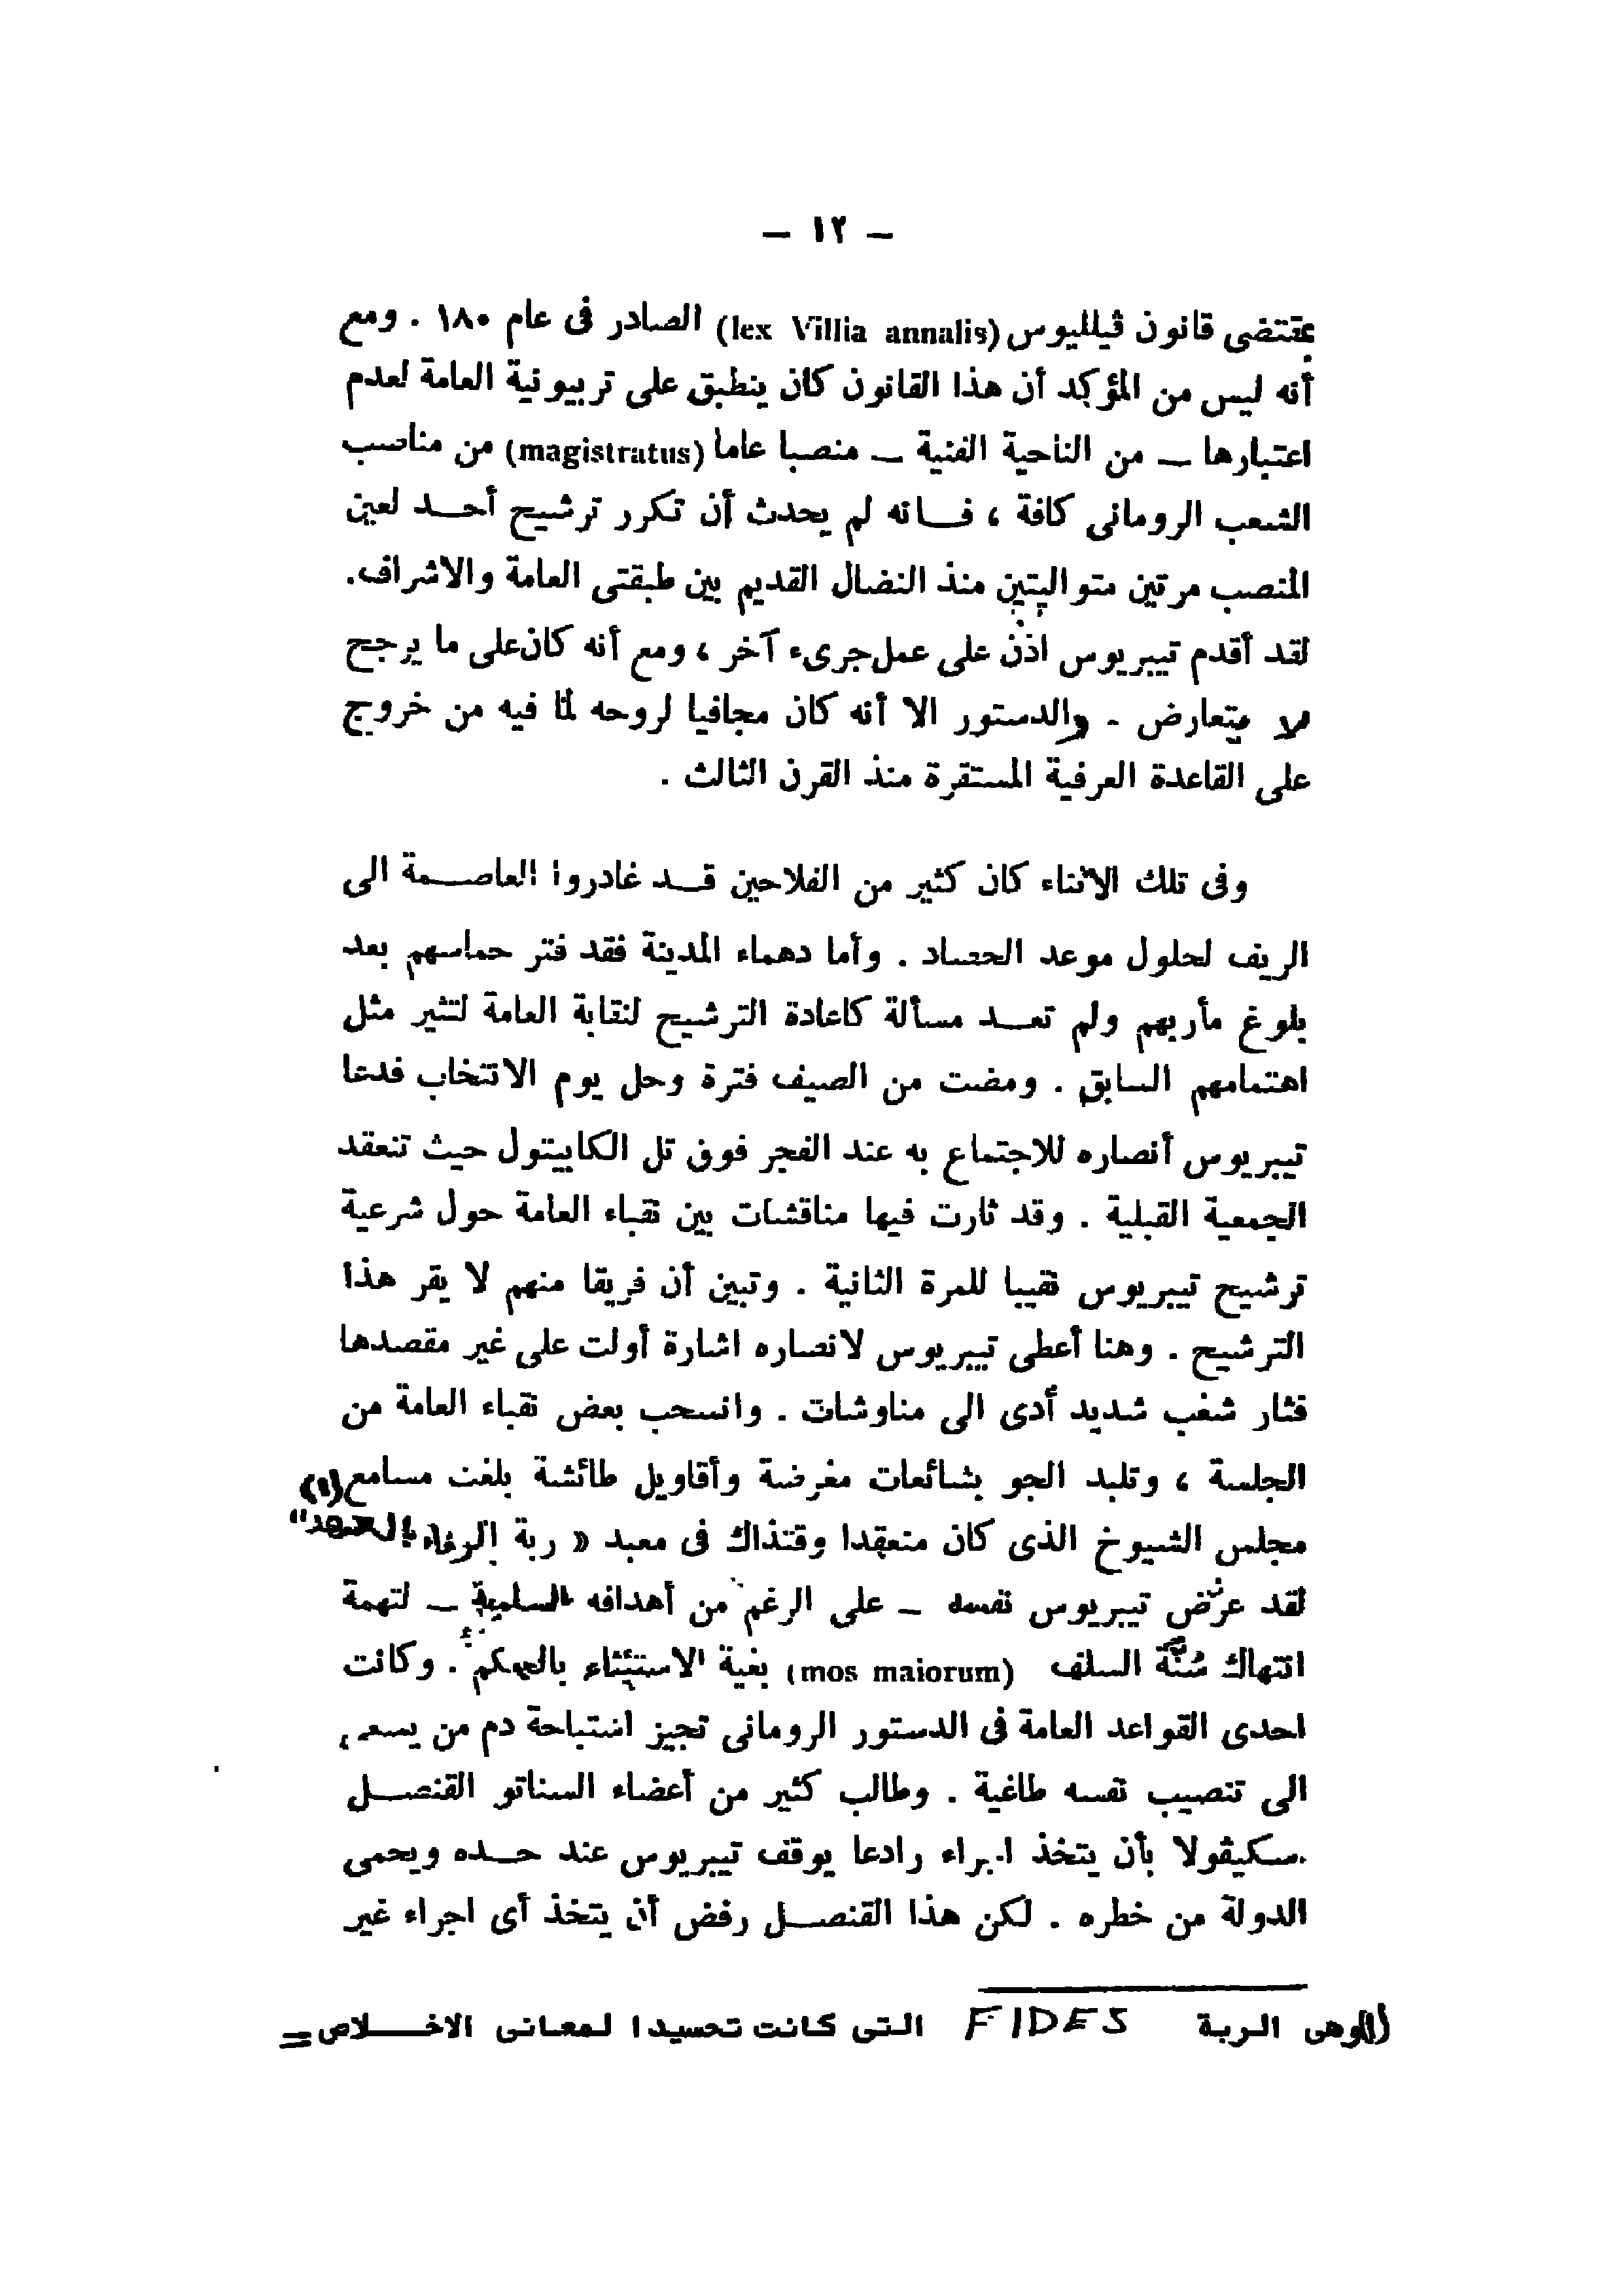 – ١٢ –
بمقتضى قانون ڤيلليوس (lex Villia annalis) الصادر فى عام ١٨٠ . ومع
أنه ليس من المؤكد أن هذا القانون كان ينطبق على تربيونية العامة لعدم
اعتبارها – من الناحية الفنية – منصبا عاما (magistratus) من مناصب
الشعب الرومانى كافة ، فانه لم يحدث أن تكرر ترشيح أحد لعين
المنصب مرتين متواليتين منذ النضال القديم بين طبقتى العامة والاشراف.
لقد أقدم تيبريوس اذن على عمل جرىء آخر ، ومع أنه كان على ما يرجح
لا يتعارض - والدستور الا أنه كان مجافيا لروحه لما فيه من خروج
على القاعدة العرفية المستقرة منذ القرن الثالث .
وفى تلك الاثناء كان كثير من الفلاحين قد غادروا العاصمة الى
الريف لحلول موعد الحصاد . وأما دهماء المدينة فقد فتر حماسهم بعد
بلوغ مأربهم ولم تعد مسألة كاعادة الترشيح لنقابة العامة لتثير مثل
اهتمامهم السابق . ومضت من الصيف فترة وحل يوم الانتخاب فدعا
تيبريوس أنصاره للاجتماع به عند الفجر فوق تل الكابيتول حيث تنعقد
الجمعية القبلية . وقد ثارت فيها مناقشات بين نقباء العامة حول شرعية
ترشيح تيبريوس نقيبا للمرة الثانية . وتبين أن فريقا منهم لا يقر هذا
الترشيح . وهنا أعطى تيبريوس لانصاره اشارة أولت على غير مقصدها
فثار شغب شديد أدى الى مناوشات . وانسحب بعض نقباء العامة من
الجلسة ، وتلبد الجو بشائعات مغرضة وأقاويل طائشة بلغت مسامع (١)
مجلس الشيوخ الذى كان منعقدا وقتذاك فى معبد « ربة الوفاء بالعهد"
لقد عرّض تيبريوس نفسه – على الرغم من أهدافه السلمية – لتهمة
انتهاك سُنَّة السلف (mos maiorum) بغية الاستئثاء بالحكم . وكانت
احدى القواعد العامة فى الدستور الرومانى تجيز استباحة دم من يسعى
الى تنصيب نفسه طاغية . وطالب كثير من أعضاء السناتو القنصل
سكيڤولا بأن يتخذ اجراء رادعا يوقف تيبريوس عند حده ويحمى
الدولة من خطره . لكن هذا القنصل رفض أن يتخذ أى اجراء غير
(١) وهى الربة FIDES التى كانت تجسيدا لمعانى الاخلاص =